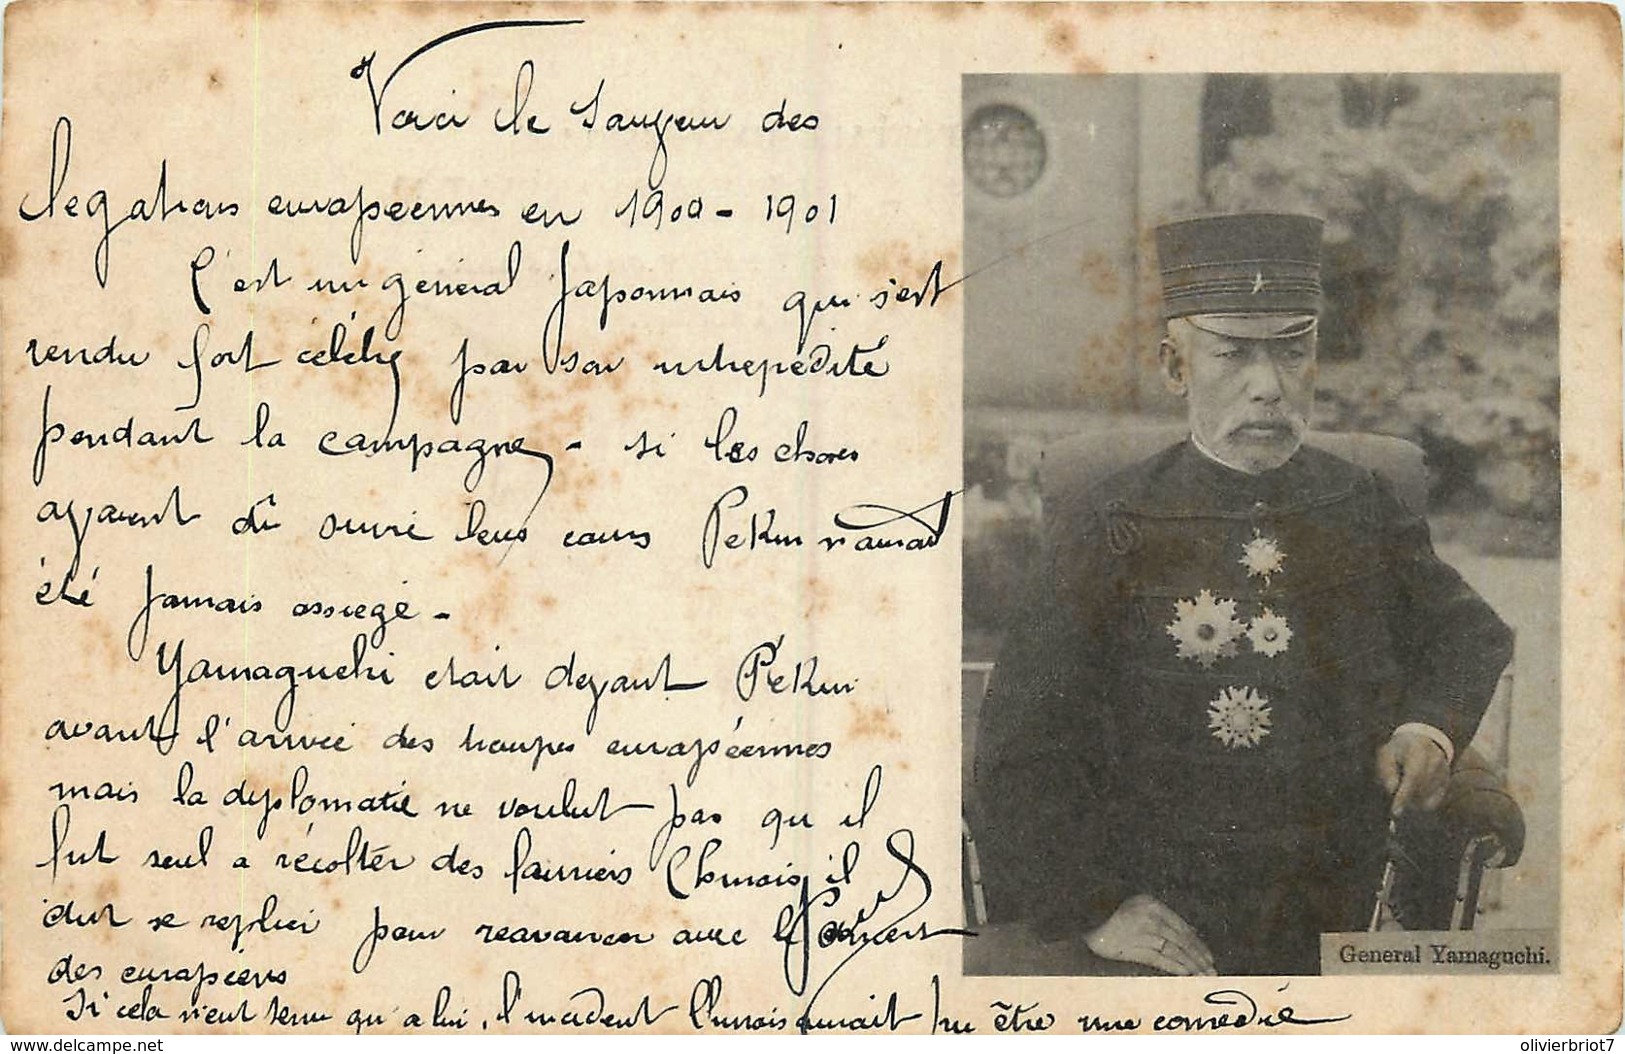 Voici le Sauveur des
légations européennes en 1900 - 1901
C'est un général Japonnais qui s'est
rendu fort célèbre par son intrépédité
pendant la campagne - si les choses
avaient dû suivre leur cours Pékin n'aurait
été jamais assiégé -
Yamaguchi etait devant Pékin
avant l'arrivée des troupes européennes
mais la diplomatie ne voulut pas qu'il
fut seul a récolter des lauriers Chinois, il
dut se replier pour reavancer avec le Concert
des européens
Si cela n'eut tenu qu'a lui, l'incident Chinois aurait pu être une comedie
Paul
General Yamaguchi.
delcampe.net
olivierbriot7